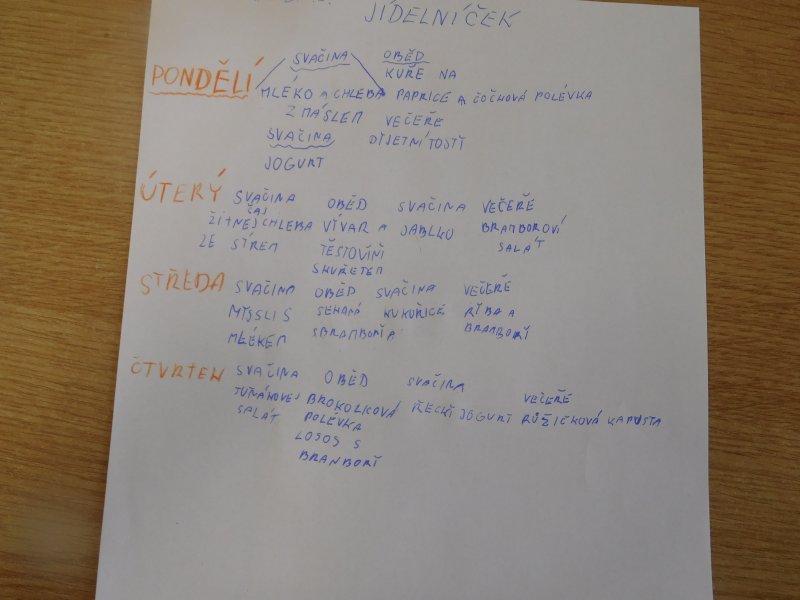 JÍDELNÍČEK
PONDĚLÍ
SVAČINA OBĚD
KUŘE NA
MLÉKO A CHLEBA PAPRICE A ČOČHOVÁ POLÉVKA
Z MÁSLEM VEČEŘE
SVAČINA DÝJETNÍ TOSTÝ
JOGURT
ÚTERÝ SVAČINA OBĚD SVAČINA VEČEŘE
ČAJ
ŽITNEJ CHLEBA VÍVAR A JABLKO BRAMBOROVÍ
ZE SÍREM TĚSTOVINÍ SALÁT
SKUŘETEM
STŘEDA SVAČINA OBĚD SVAČINA VEČEŘE
MÝSSLI S SEKANÁ KUKUŘICE RÍBA A
MLÉKEM SBRAMBORÝA BRAMBORÝ
ČTVRTEK SVAČINA OBĚD SVAČINA VEČEŘE
TUŇÁKOVEJ BROKOLICOVÁ ŘECKÝ JOGURT RŮŽIČKOVÁ KAPUSTA
SALÁT POLÉVKA
LOSOS S
BRAMBORÝ